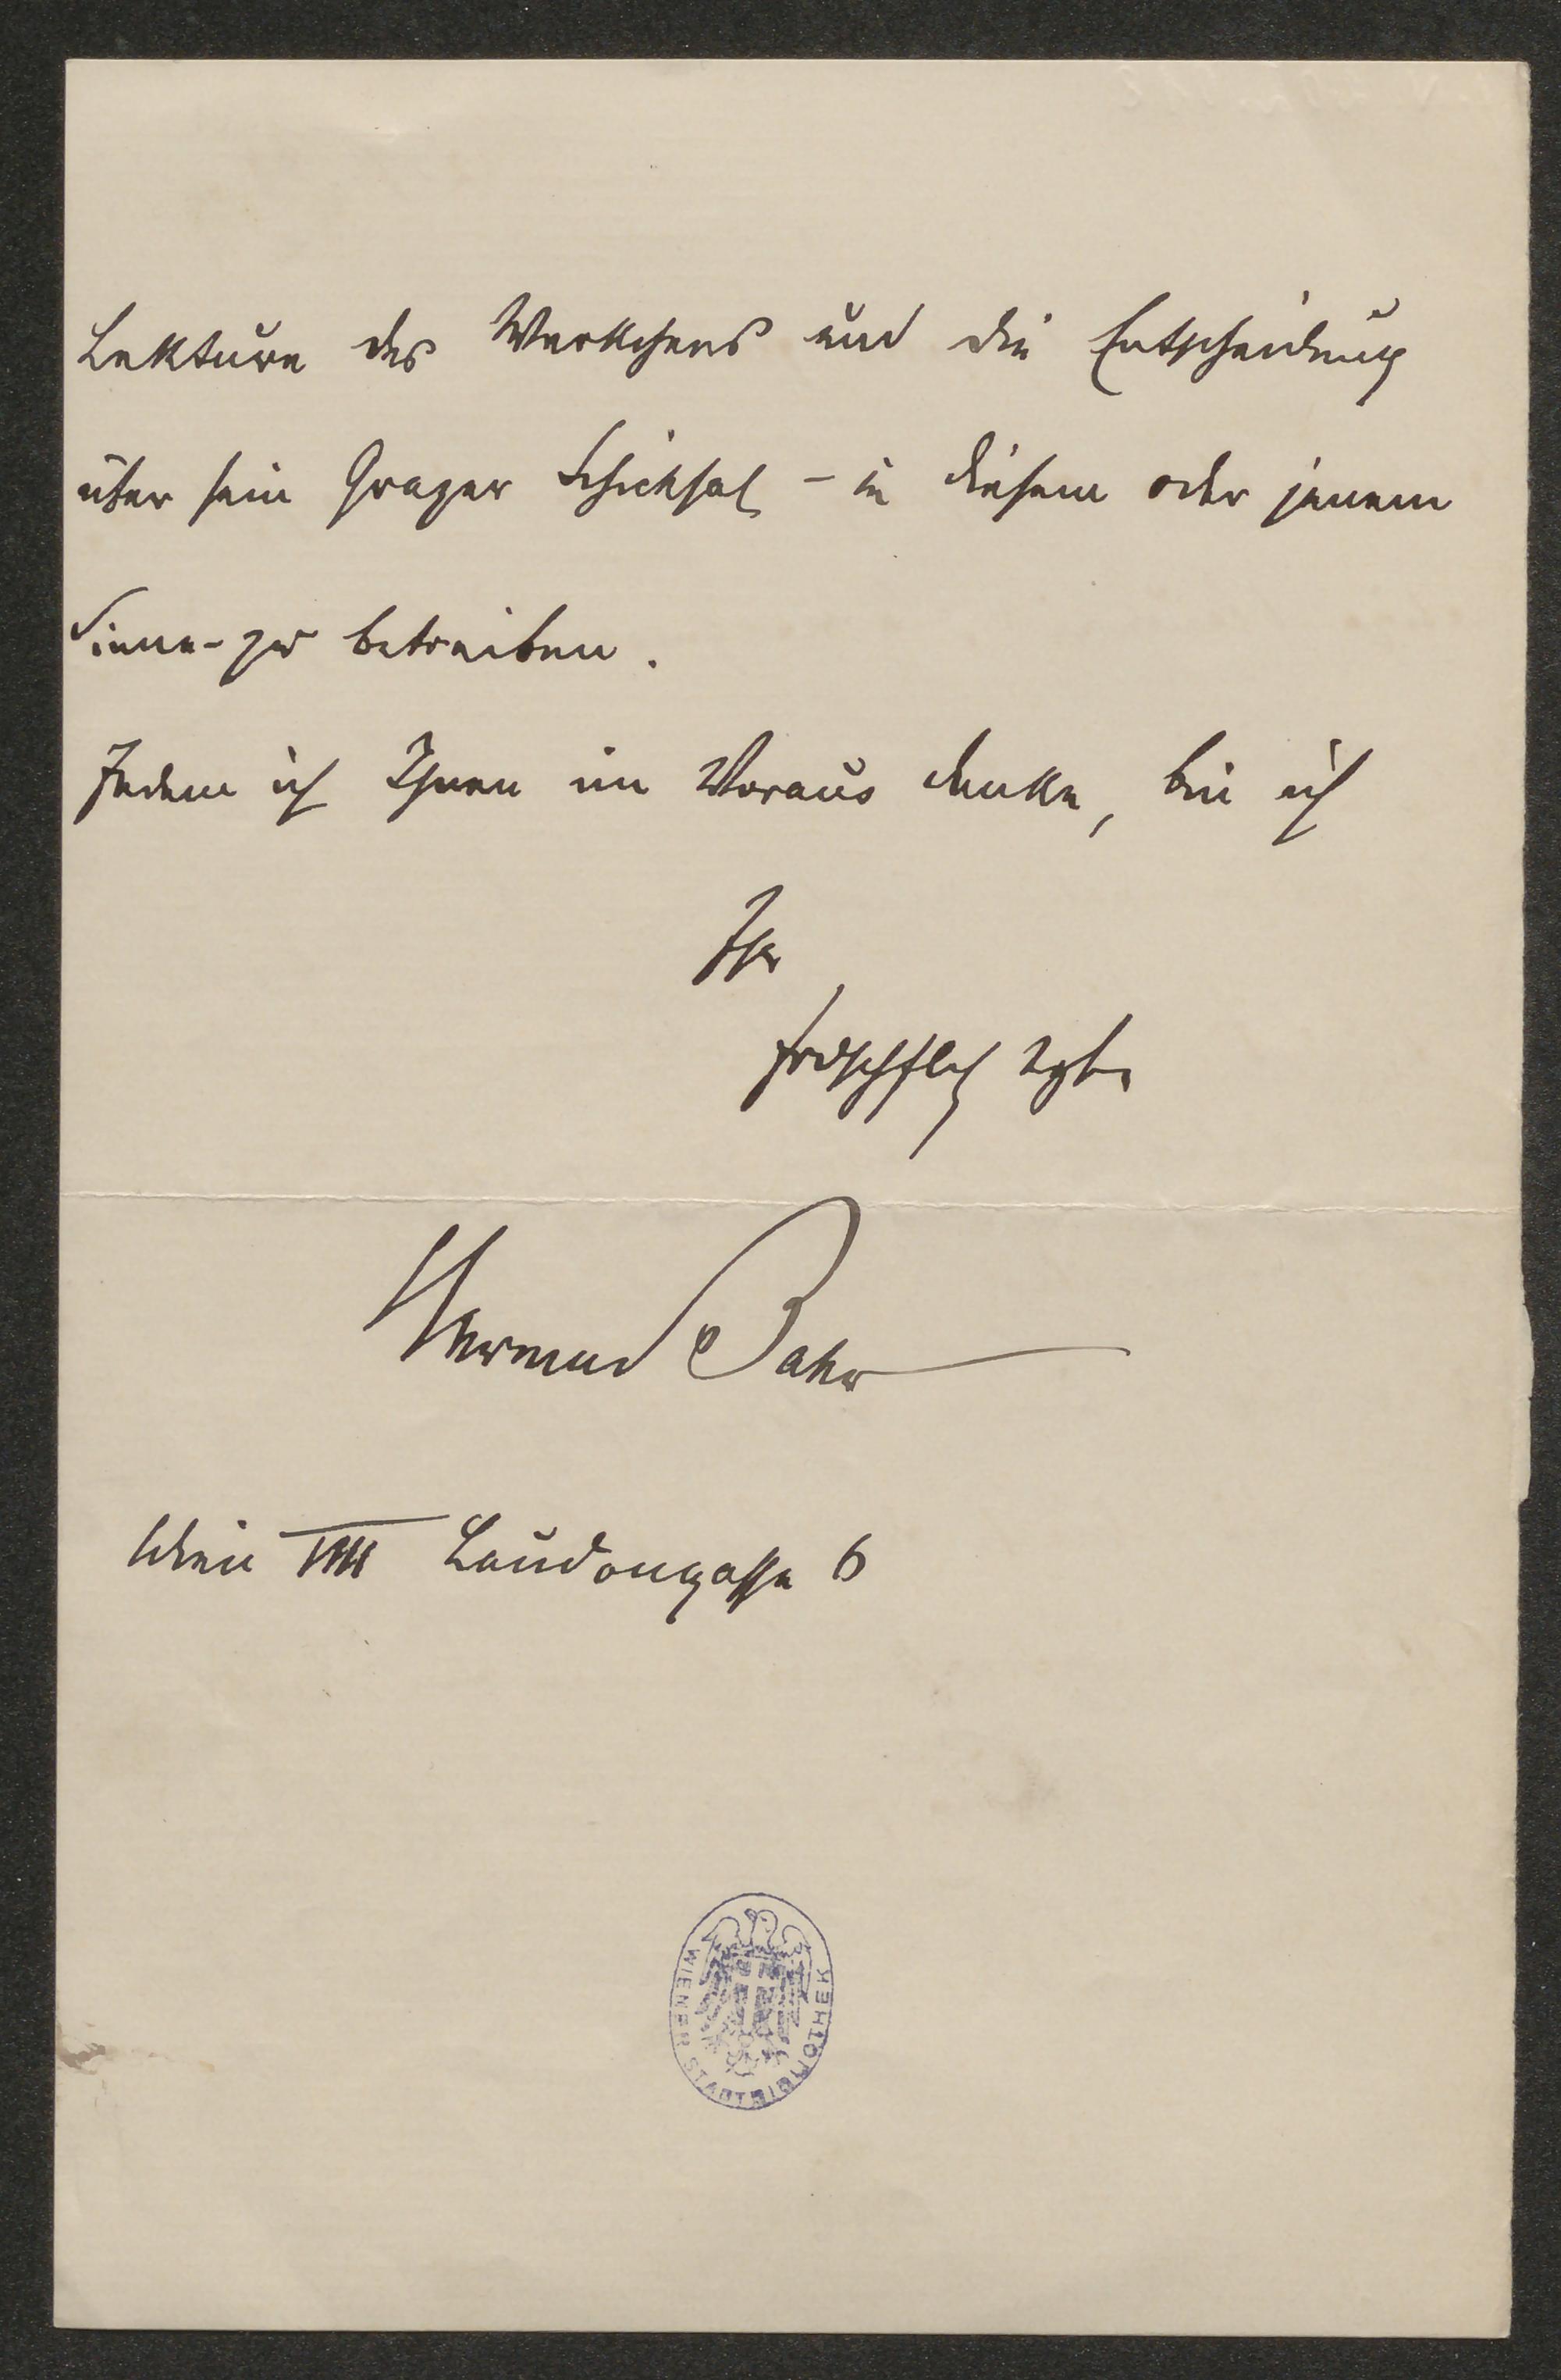 Lektüre des Werkchens und die Entscheidung
über sein Grazer Schicksal – in diesem oder jenem
Sinne – zu betreiben.
Indem ich Ihnen im Voraus danke, bin ich
Ihr
frdschftlch ergb.
Herman Bahr
Wien VIII Laudongasse 6
WIENER STADTBIBLIOTHEK